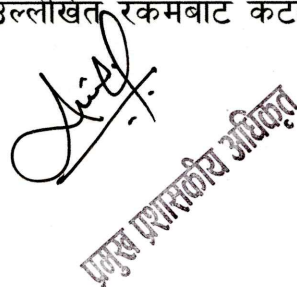 उल्लेखित रकमबाट कट
प्रमुख प्रशासकीय अधिकृत